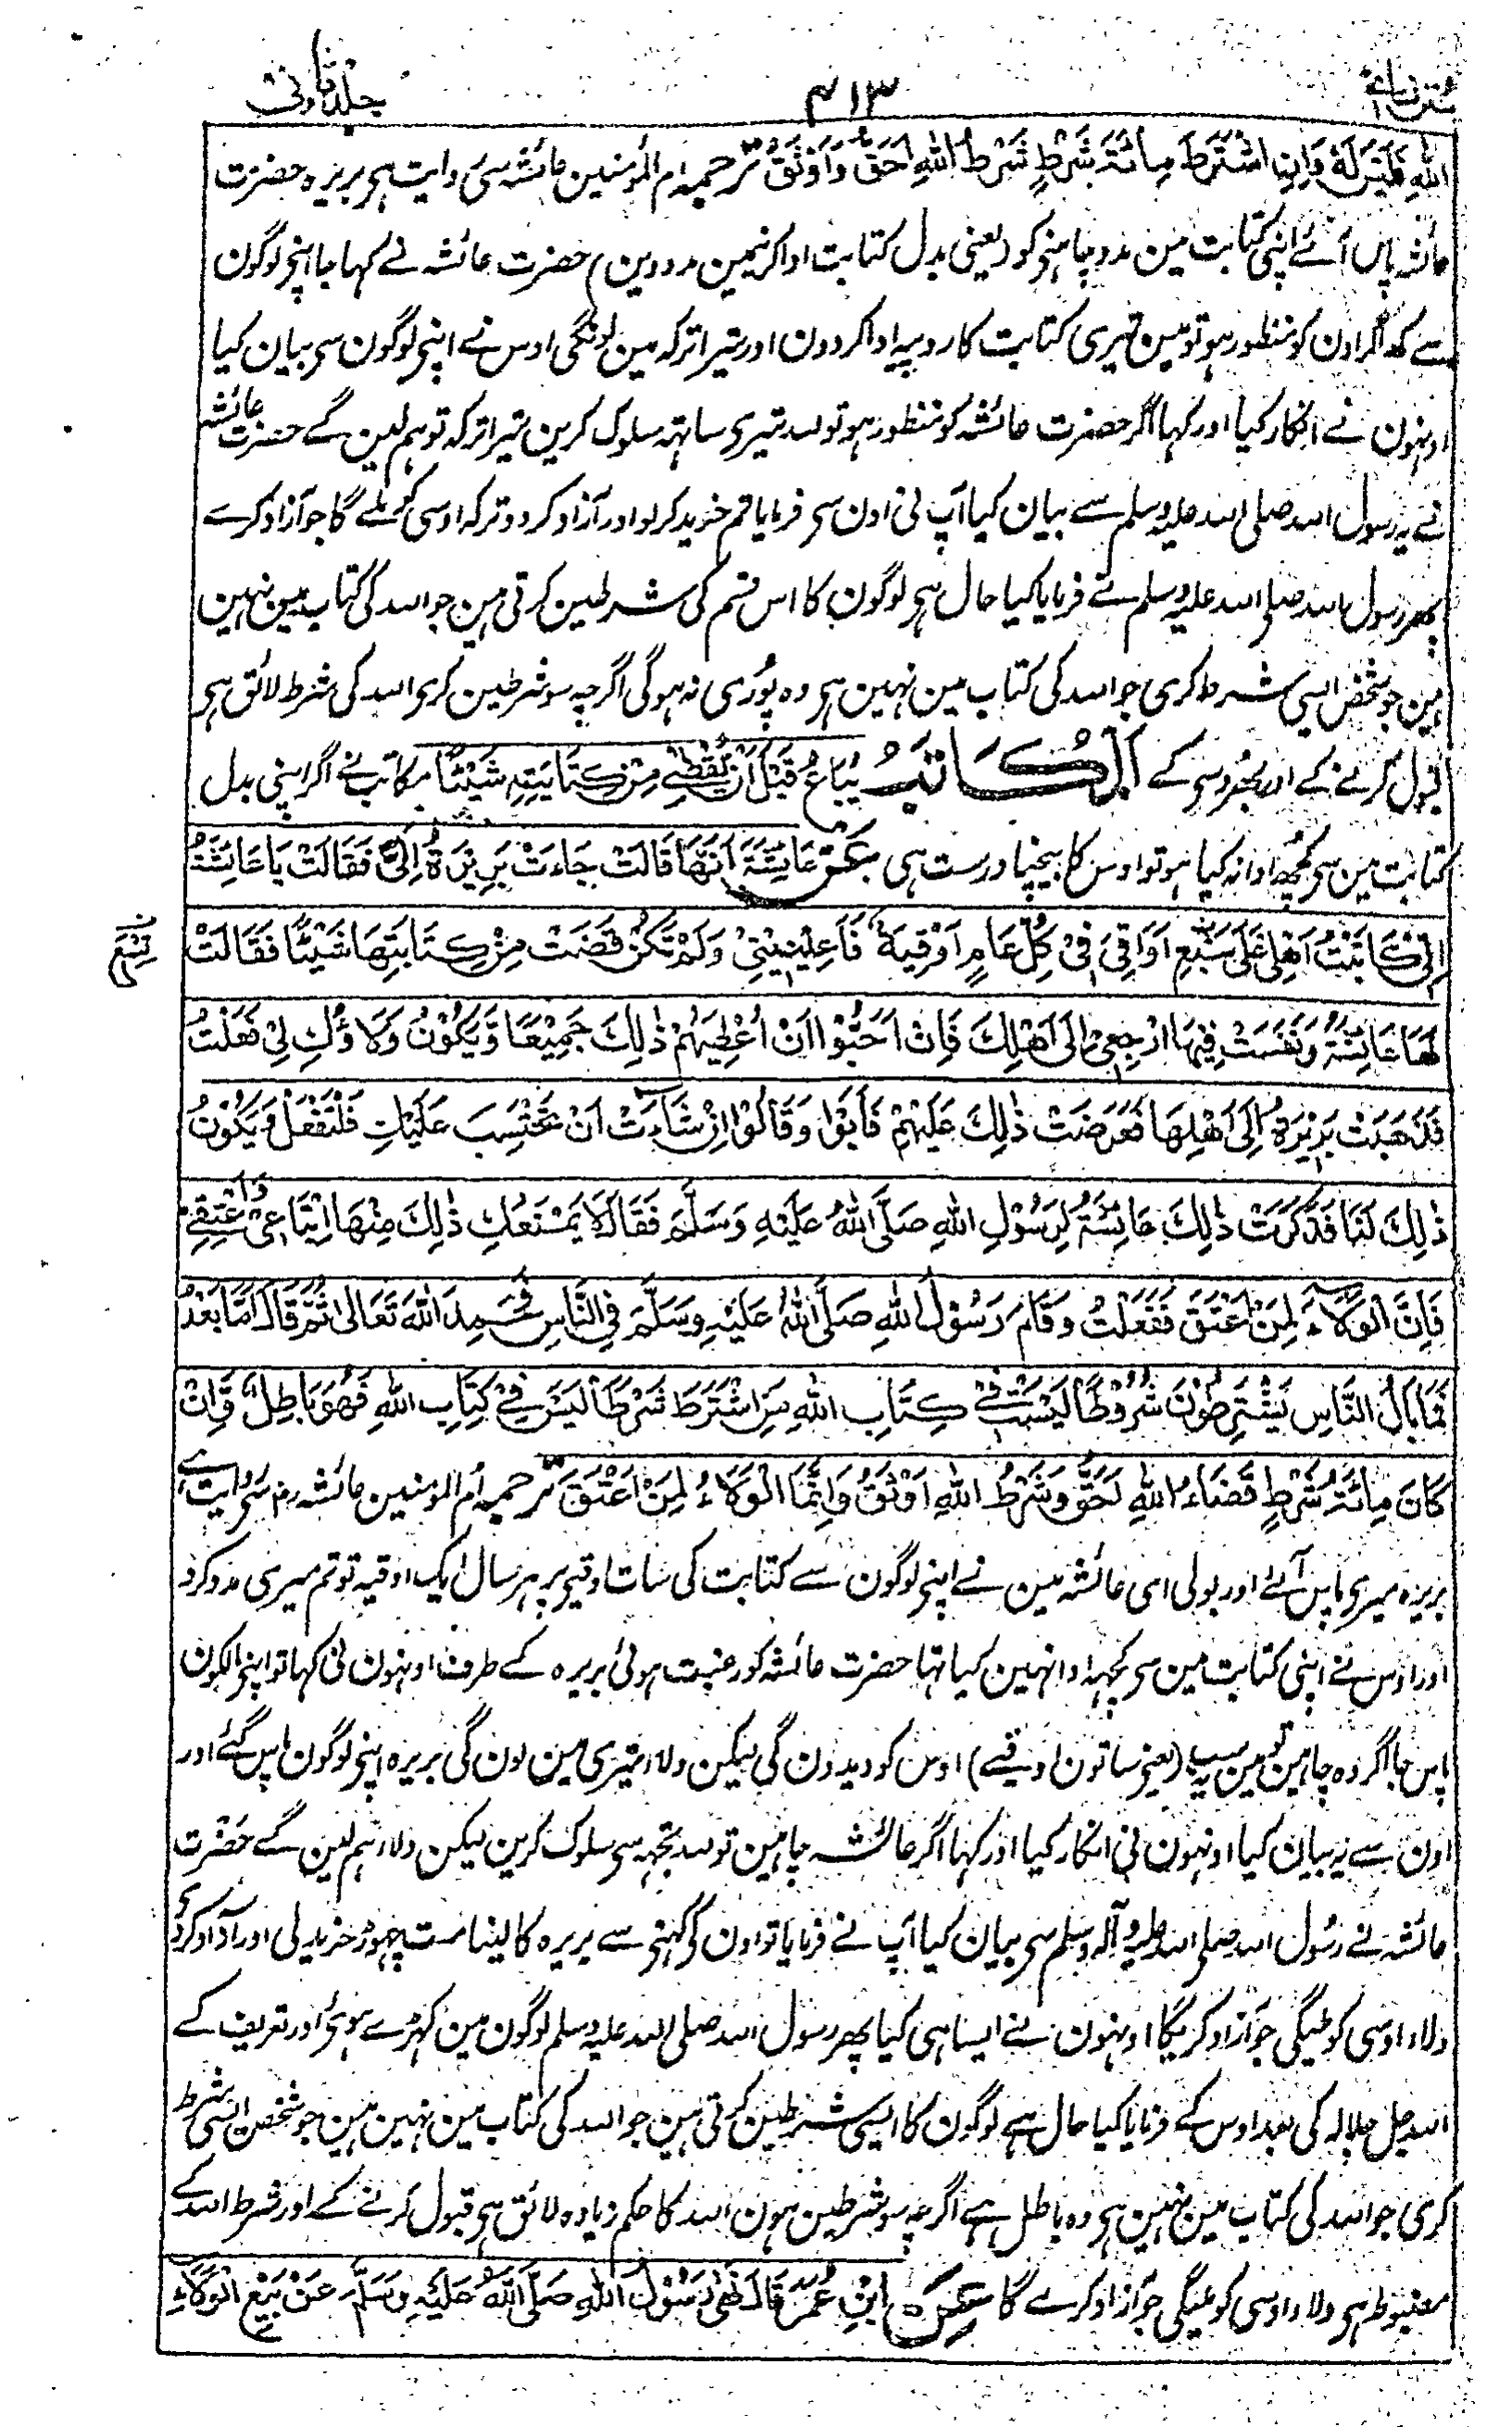 سنن نسائی ۴۱۳ جلد ثانی
اللّٰهِ فَلَيْسَ لَهُ وَاِنِ اشْتَرَطَ مِائَةَ شَرْطٍ شَرْطُ اللّٰهِ اَحَقُّ وَاَوْثَقُ ترجمہ ام المؤمنین عائشہ سی روایت ہی بریرہ حضرت
عائشہ پاس آئے اپنی کتابت مین مدد چاہنی کو (یعنی بدل کتابت ادا کرنیمین مدد دین) حضرت عائشہ نے کہا جا اپنی لوگون
سے کہہ اگر اون کو منظور ہو تو مین تیری کتابت کا روپیہ ادا کردون اور تیرا ترکہ مین لونگی اوس نے اپنی لوگون سی بیان کیا
اونہون نے انکار کیا اور کہا اگر حضرت عائشہ کو منظور ہو تو للہ تیری ساتہہ سلوک کرین تیرا ترکہ تو ہم لین گے حضرت عائشہ
نے یہ رسول اللہ صلی اللہ علیہ وسلم سے بیان کیا آپ نی اون سی فرمایا تم خرید کر لو اور آزاد کر دو ترکہ اوسی کو ملے گا جو آزاد کرے
پھر رسول اللہ صلی اللہ علیہ وسلم نے فرمایا کیا حال ہی لوگون کا اس قسم کی شرطین کرتی ہین جو اللہ کی کتاب مین نہین
ہین جو شخص ایسی شرط کری جو اللہ کی کتاب مین نہین ہی وہ پوری نہ ہوگی اگرچہ سو شرطین کری اللہ کی شرط لائق ہی
قبول کرنے کے اور بھروسی کے اَلْمُكَاتَبُ يُبَاعُ قَبْلَ اَنْ يَقْضِيَ مِنْ كِتَابَتِهٖ شَيْئًا مکاتب نے اگر اپنی بدل
کتابت مین سی کچھہ ادا نہ کیا ہو تو اوس کا بیچنا درست ہی عَنْ عَايِشَةَ اَنَّهَا قَالَتْ جَاءَتْ بَرِيْرَةُ اِلَيَّ فَقَالَتْ يَا عَايِشَةُ
اِنِّيْ كَاتَبْتُ اَهْلِيْ عَلٰى سَبْعِ اَوَاقِيَ فِيْ كُلِّ عَامٍ اَوْقِيَةٌ فَاَعِيْنِيْنِيْ وَلَمْ تَكُنْ قَضَتْ مِنْ كِتَابَتِهَا شَيْئًا فَقَالَتْ
لَهَا عَايِشَةُ وَنَفِسَتْ فِيْهَا ارْجِعِيْ اِلٰى اَهْلِكِ فَاِنْ اَحَبُّوْا اَنْ اُعْطِيَهُمْ ذٰلِكَ جَمِيْعًا وَّيَكُوْنُ وَلَاؤُكِ لِيْ فَعَلْتُ
فَذَهَبَتْ بَرِيْرَةُ اِلٰى اَهْلِهَا فَعَرَضَتْ ذٰلِكَ عَلَيْهِمْ فَاَبَوْا وَقَالُوْا اِنْ شَاءَتْ اَنْ تَحْتَسِبَ عَلَيْكِ فَلْتَفْعَلْ وَيَكُوْنُ
ذٰلِكَ لَنَا فَذَكَرَتْ ذٰلِكَ عَائِشَةُ لِرَسُوْلِ اللّٰهِ صَلَّى اللّٰهُ عَلَيْهِ وَسَلَّمَ فَقَالَ لَا يَمْنَعُكِ ذٰلِكَ مِنْهَا ابْتَاعِيْ وَاَعْتِقِيْ
فَاِنَّ الْوَلَاءَ لِمَنْ اَعْتَقَ فَفَعَلَتْ وَقَامَ رَسُوْلُ اللّٰهِ صَلَّى اللّٰهُ عَلَيْهِ وَسَلَّمَ فِي النَّاسِ فَحَمِدَ اللّٰهَ تَعَالٰى ثُمَّ قَالَ اَمَّا بَعْدُ
فَمَا بَالُ النَّاسِ يَشْتَرِطُوْنَ شُرُوْطًا لَيْسَتْ فِيْ كِتَابِ اللّٰهِ مَنِ اشْتَرَطَ شَرْطًا لَيْسَ فِيْ كِتَابِ اللّٰهِ فَهُوَ بَاطِلٌ وَّاِنْ
كَانَ مِائَةَ شَرْطٍ قَضَاءُ اللّٰهِ اَحَقُّ وَشَرْطُ اللّٰهِ اَوْثَقُ وَاِنَّمَا الْوَلَاءُ لِمَنْ اَعْتَقَ ترجمہ ام المومنین عائشہ رض سی روایت ہے
بریرہ میری پاس آئے اور بولی ای عائشہ مین نے اپنی لوگون سے کتابت کی سات اوقیی پر ہر سال ایک اوقیہ تو تم میری مدد کرو
اور اوس نے اپنی کتابت مین سی کچہہ ادا نہین کیا تہا حضرت عائشہ کو رغبت ہوئی بریرہ کے طرف اونہون نی کہا تو اپنی مالکون
پاس جا اگر وہ چاہین تو مین سب یہ (یعنی ساتون اوقیے) اوس کو دیدون گی لیکن ولاء تیری مین لون گی بریرہ اپنی لوگون پاس گئے اور
اون سے یہ بیان کیا اونہون نی انکار کیا اور کہا اگر عائشہ چاہین تو للہ تجہہ سی سلوک کرین لیکن ولاء ہم لین گے حضرت
عائشہ نے رسول اللہ صلی اللہ علیہ وآلہ وسلم سی بیان کیا آپ نے فرمایا تو اون کی کہنی سے بریرہ کا لینا مت چہوڑ خرید لی اور آزاد کردی
ولاء اوسی کو ملیگی جو آزاد کریگا اونہون نے ایسا ہی کیا پھر رسول اللہ صلی اللہ علیہ وسلم لوگون مین کہڑے ہوئی اور تعریف کے
اللہ جل جلالہ کی بعد اوس کے فرمایا کیا حال ہے لوگون کا ایسی شرطین کرتی ہین جو اللہ کی کتاب مین نہین ہین جو شخص ایسی شرط
کری جو اللہ کی کتاب مین نہین ہی وہ باطل ہے اگرچہ سو شرطین ہون اللہ کا حکم زیادہ لائق ہی قبول کرنے کے اور شرط اللہ کے
مضبوط ہی ولاء اوسی کو ملیگی جو آزاد کرے گا عَنِ ابْنِ عُمَرَ قَالَ نَهٰى رَسُوْلُ اللّٰهِ صَلَّى اللّٰهُ عَلَيْهِ وَسَلَّمَ عَنْ بَيْعِ الْوَلَاءِ